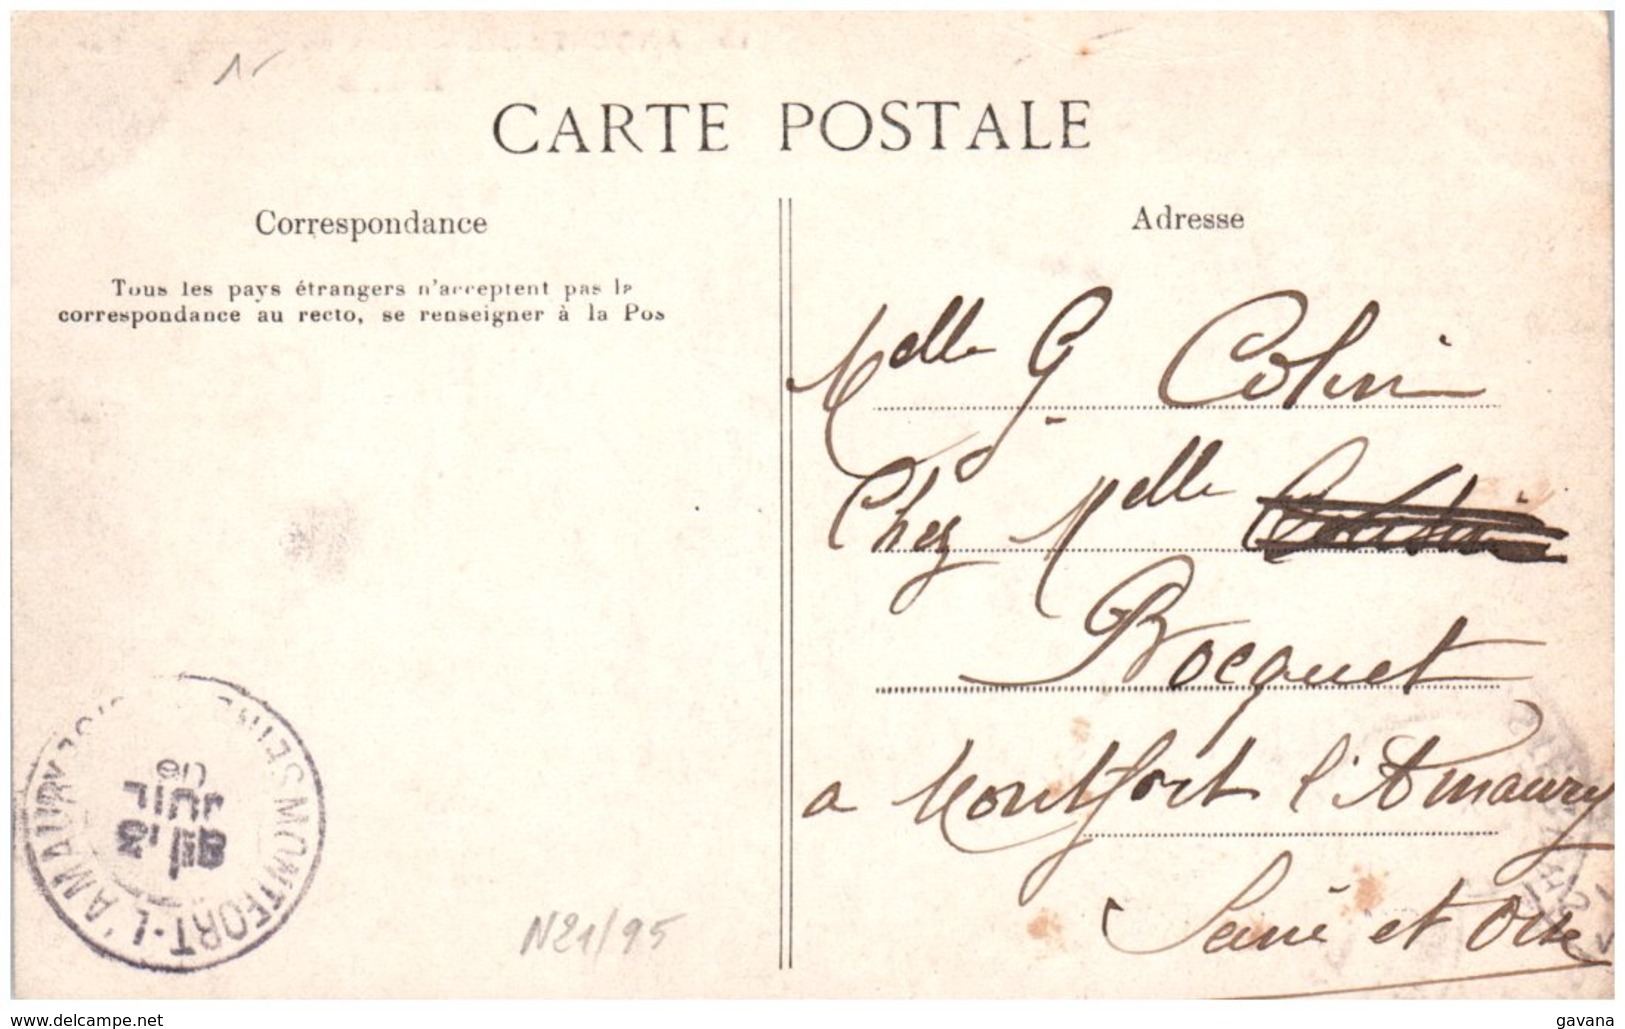 CARTE POSTALE
Correspondance
Tous les pays étrangers n'acceptent pas la
correspondance au recto, se renseigner à la Pos
Adresse
Melle G. Colin
Chez Melle
Bocquet
a Montfort l'Amaury
Seine et Oise
MONTFORT-L'AMAURY
JUIL
N21/95
www.delcampe.net
gavana